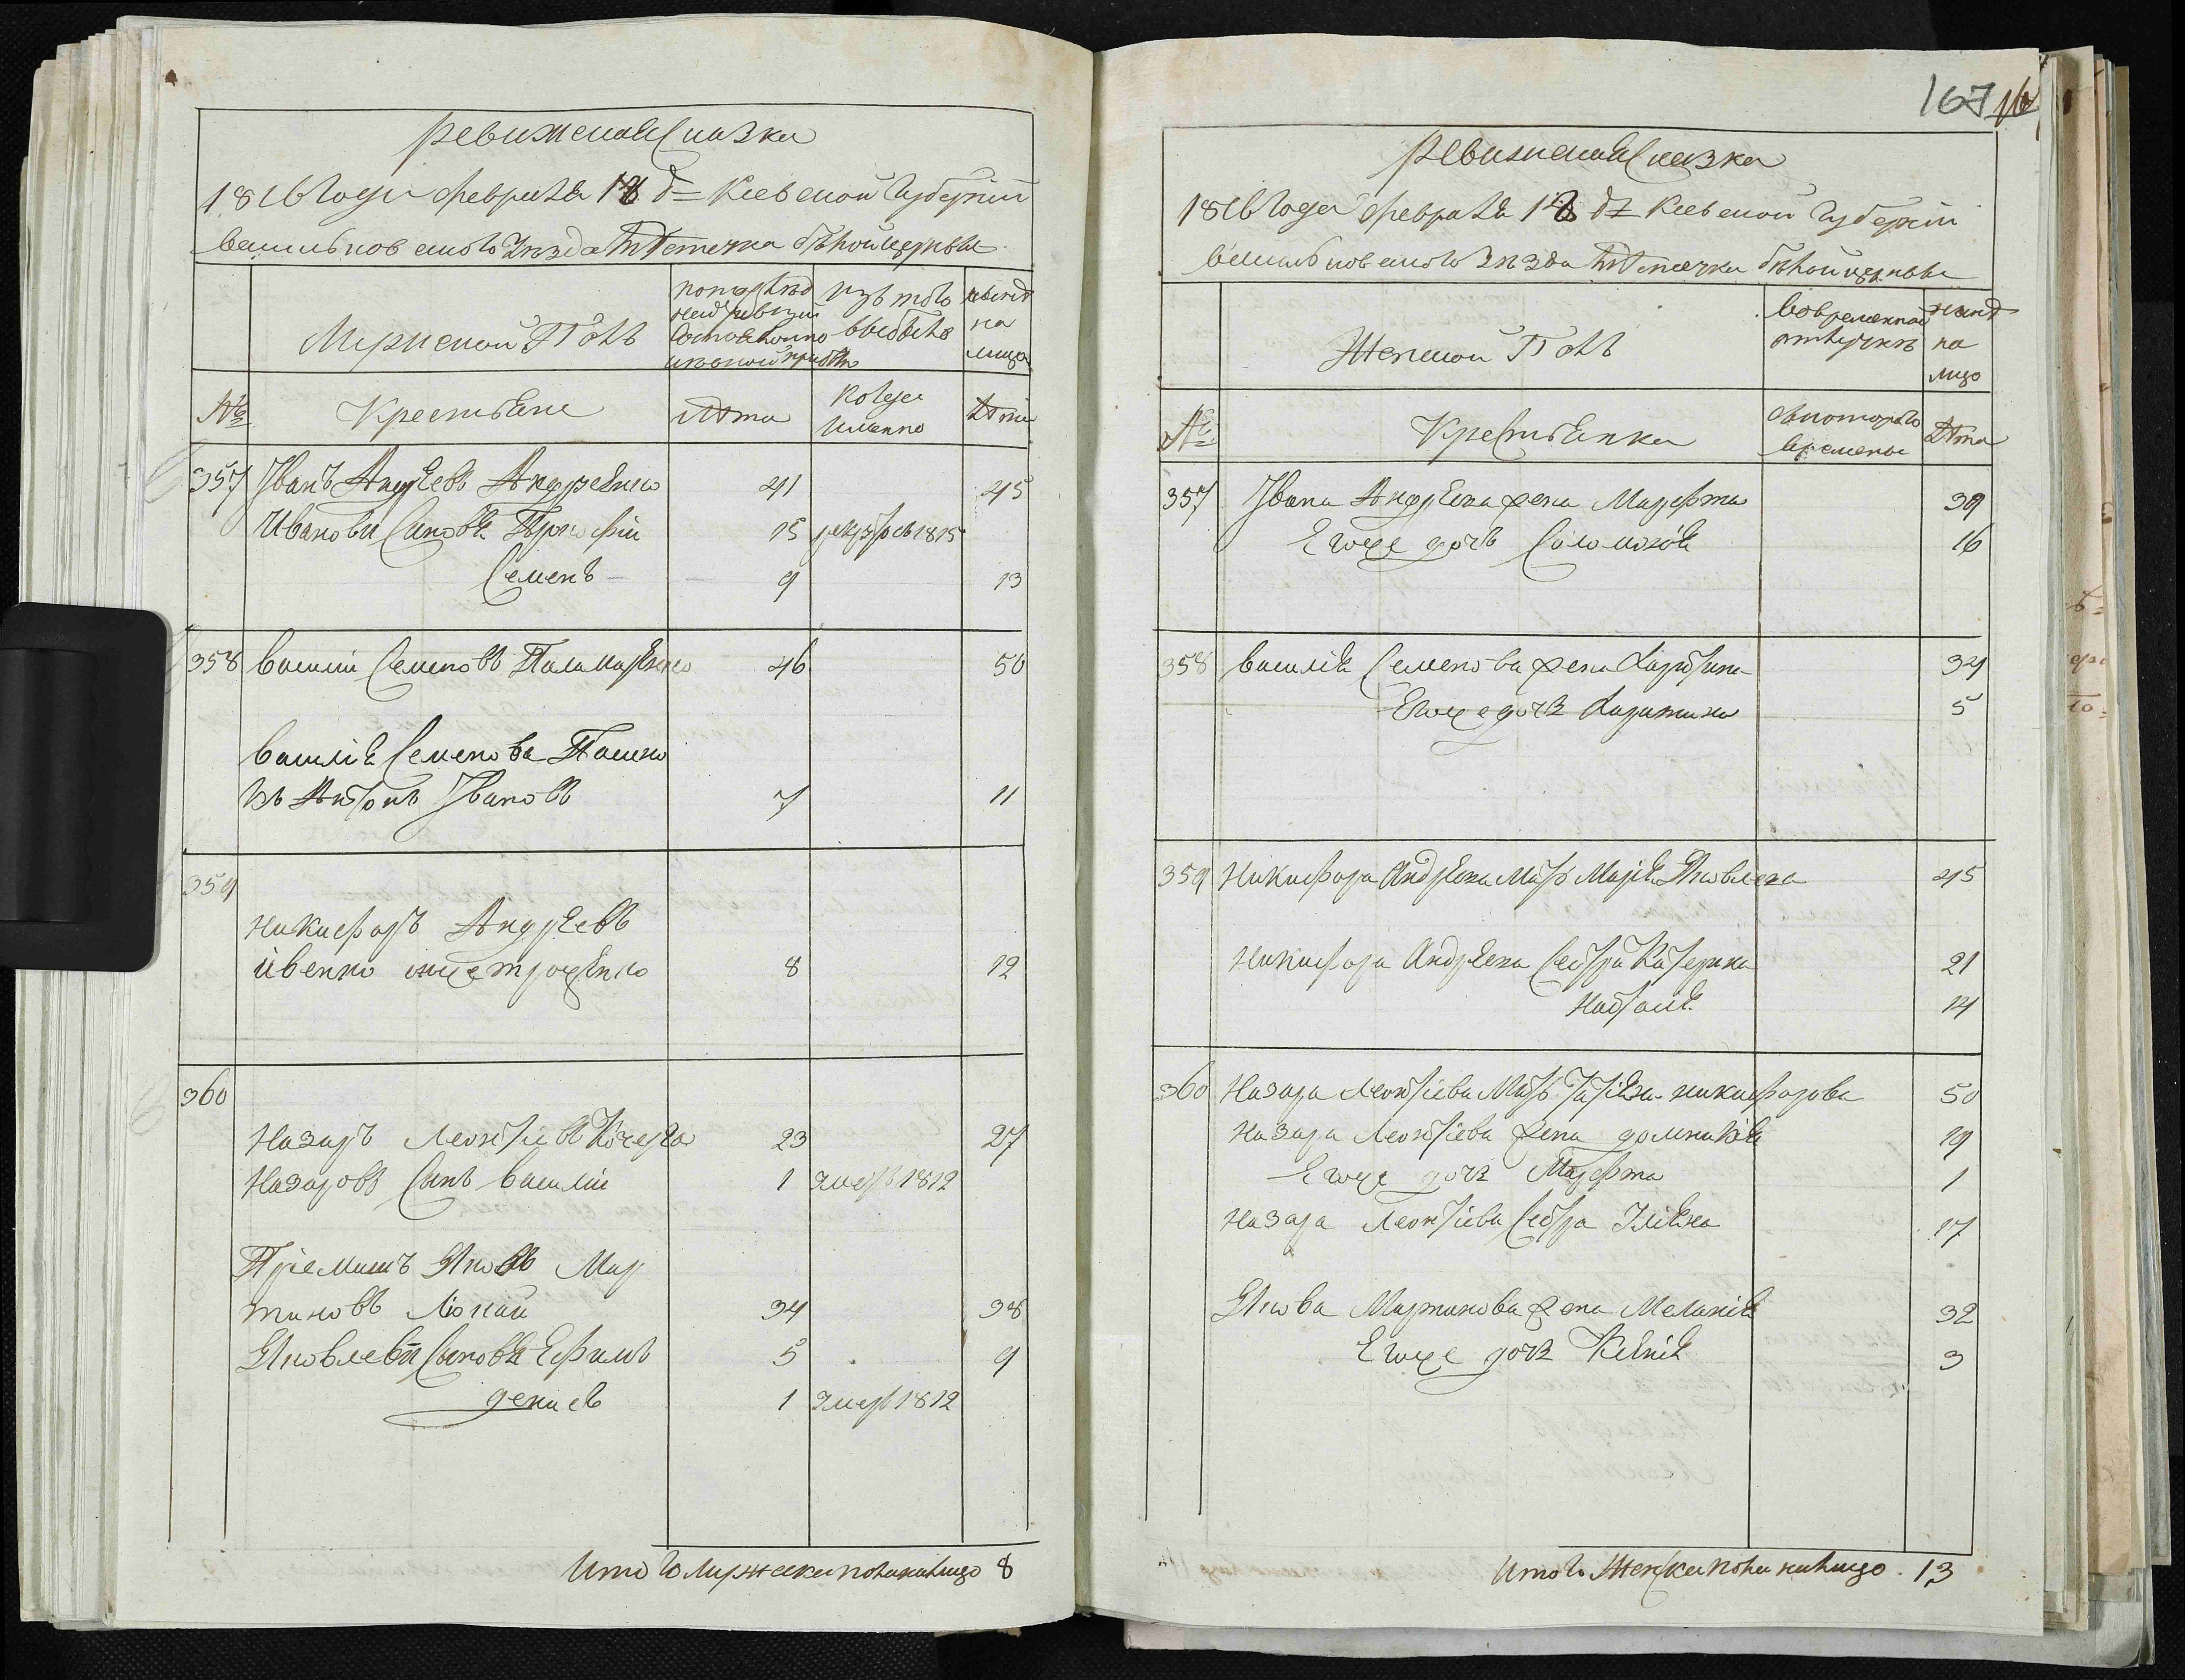 Ревижская Сказка
1816 Года Февраля 18 д= Киевской Губернiи
васильковского уѣзда Мѣстечка бѣлой церкви
Мужеской Полъ
по последней ревизiи состояло
изъ того выбыло
ныне на лицо
№
Крестьяне
Лѣта
Когда именно
Лѣта
357 Иванъ Андреевъ Андреенко 41 45
Ивановы Сыновья Прокофiй 15 рекр 1815
Семенъ 9 13
358 Василiй Семеновъ Паламаренко 46 50
Василiя Семенова Пасынокъ Антонъ Ивановъ 7 11
359
Никифоръ Андреевъ
ивенко онже троценко 8 12
360
Назаръ Леонтiевъ Кочерга 23 27
Назаровъ Сынъ Василiй 1 умеръ 1812
Прiемышъ Яковъ Мар
тиновъ Лопай 34 38
Яковлевы Сыновья Ефимъ 5 9
денисъ 1 умеръ 1812
Итого Мужеска пола на лицо 8
167
Ревижская Сказка
1816 Года Февраля 18 д= Киевской Губернiи
васильковского уѣзда Мѣстечка бѣлой церкви
Женской Полъ
Во временной отлучкѣ
ныне на лицо
№
Крестьянки
Съ котораго времени
Лѣта
357 Ивана Андреева жена Марфта 39
Егоже дочь Соломонiя 16
358 Василiя Семенова жена 34
Егоже дочь 5
359 Никифора Андреева Мать Марiя Яковлева 45
Никифора Андреева Сестры Катерина 21
Наталiя 14
360 Назара Леонтiева Мать Татiяна никифорова 50
Назара Леонтiева жена домникiя 19
Егоже дочь Марфта 1
Назара Леонтiева Сестра Улiяна 17
Якова Мартинова жена Меланiя 32
Егоже дочь Ксѣнiя 3
Итого Женска пола на лицо 13